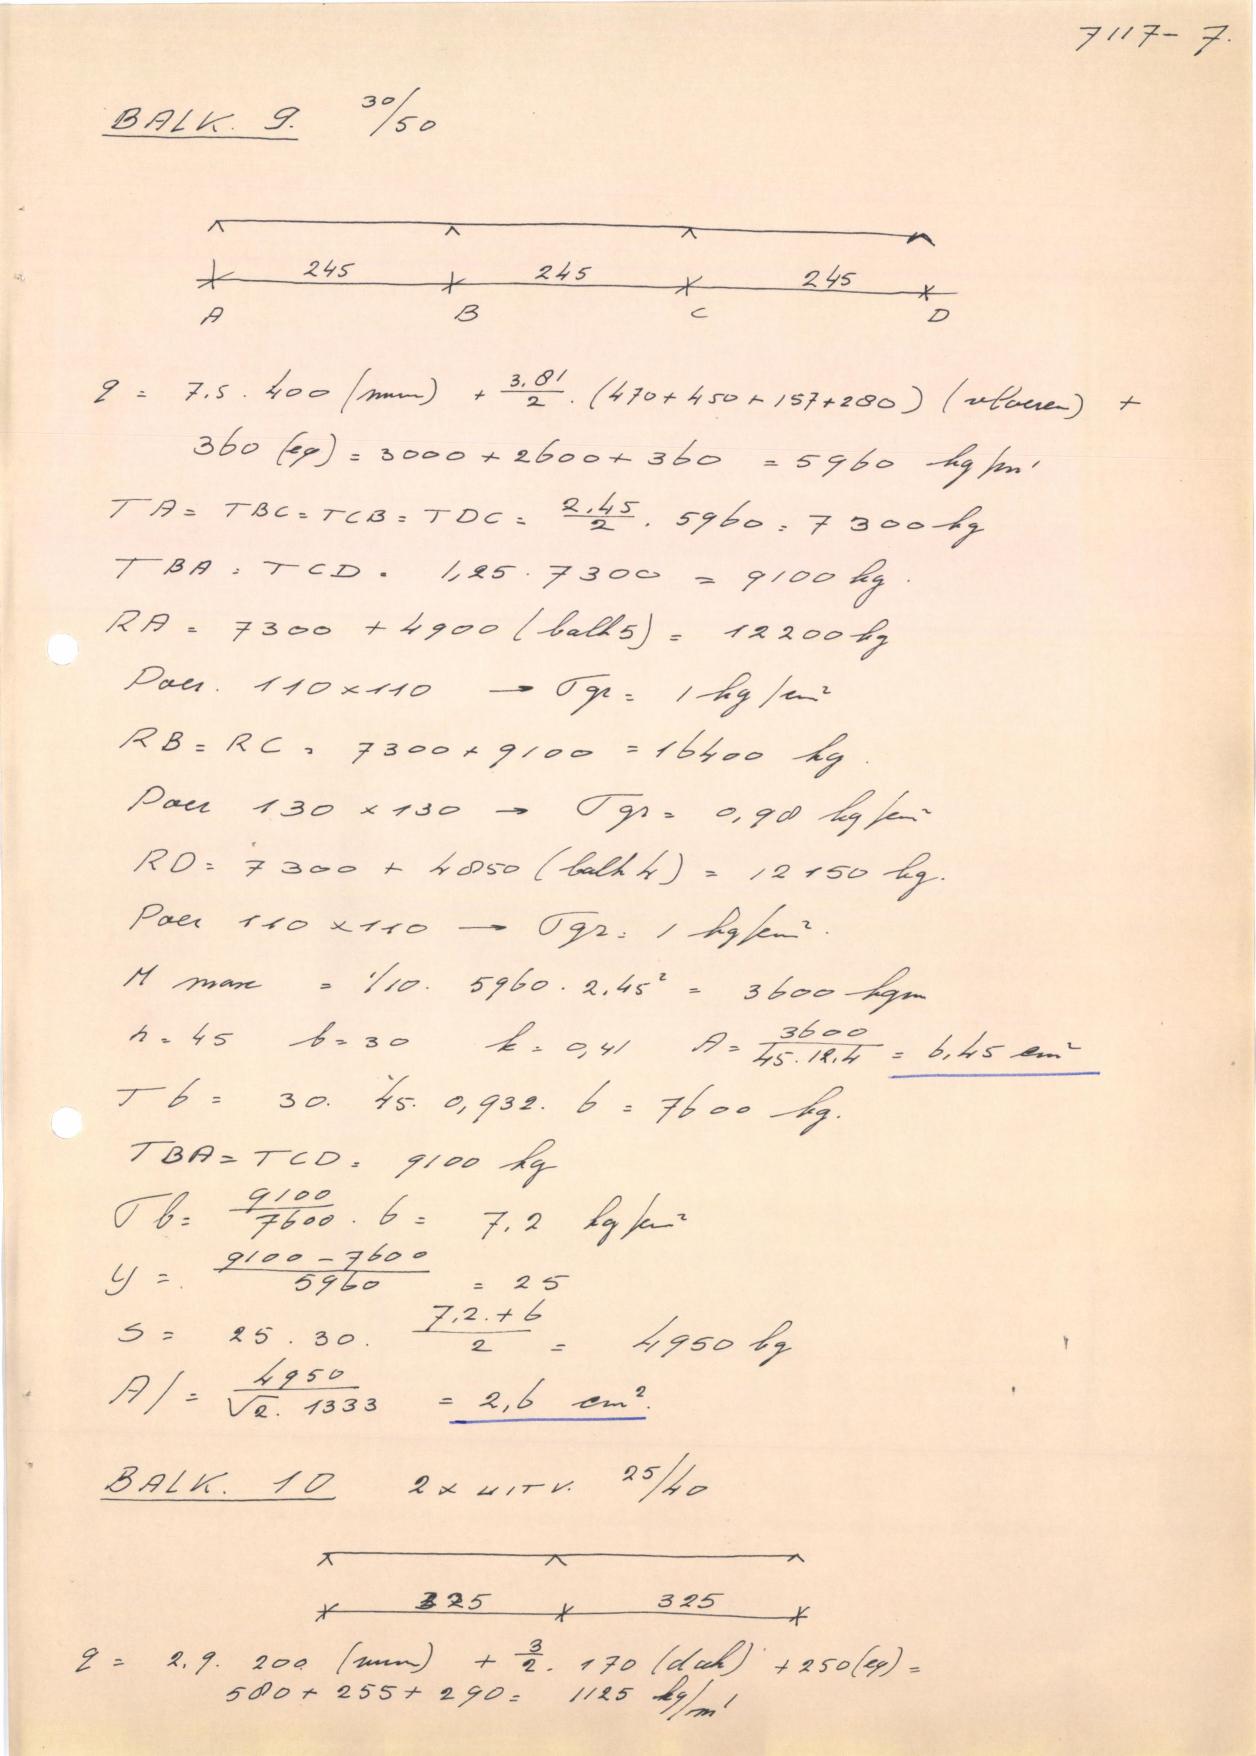 7117-7.
BALK. 9. 30/50
245 245 245
A B C D
q = 7.5. 400 (muur) + 3.81/2 . (470+450+157+280) (vloeren) +
360 (eg) = 3000+2600+360 = 5960 kg/m'
TA= TBC=TCB=TDC= 2.45/2 . 5960 = 7300 kg
TBA = TCD = 1,25. 7300 = 9100 kg.
RA = 7300 + 4900 (balk 5) = 12200 kg
Poer. 110x110 → σgr = 1 kg/cm²
RB = RC = 7300 + 9100 = 16400 kg.
Poer 130 x 130 → σgr = 0,98 kg/cm²
RD= 7300 + 4850 (balk 4) = 12150 kg.
Poer 110 x110 → σgr= 1 kg/cm².
M max = 1/10. 5960. 2.45² = 3600 kgm
h = 45 b = 30 k = 0,41 A = 3600/45.12.4 = 6,45 cm²
Tb = 30. 45. 0,932. 6 = 7600 kg.
TBA = TCD = 9100 kg
σb= 9100/7600 . 6 = 7.2 kg/cm²
y = 9100-7600/5960 = 25
S = 25. 30. 7.2.+6/2 = 4950 kg
A/ = 4950/√2. 1333 = 2,6 cm².
BALK. 10 2x UITV. 25/40
325 325
q = 2.9. 200 (muur) + 3/2. 170 (dak) + 250(eg) =
580+ 255+ 290= 1125 kg/m'